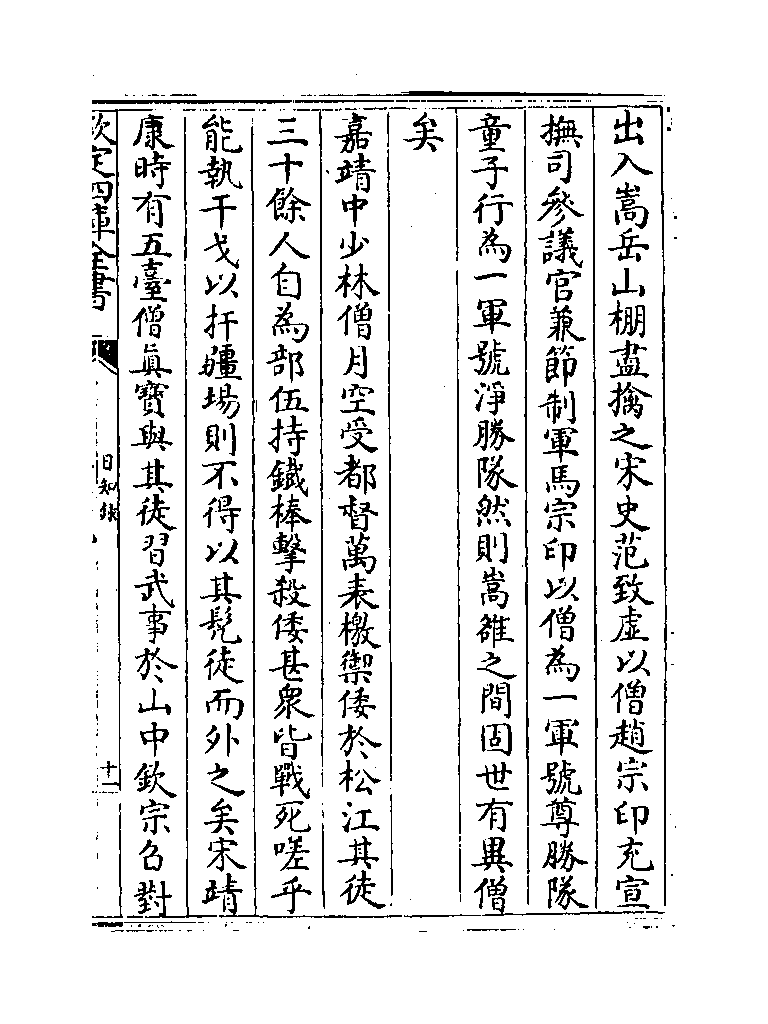 出入嵩岳山棚盡擒之宋史范致虛以僧趙宗印充宣
撫司參議官兼節制軍馬宗印以僧為一軍號尊勝隊
童子行為一軍號淨勝隊然則嵩雒之間固世有異僧
矣
嘉靖中少林僧月空受都督萬表檄禦倭於松江其徒
三十餘人自為部伍持鐵棒擊殺倭甚衆皆戰死嗟乎
能執干戈以扞疆場則不得以其髡徒而外之矣宋靖
康時有五臺僧眞寶與其徒習武事於山中欽宗召對
欽定四庫全書
日知錄
十一